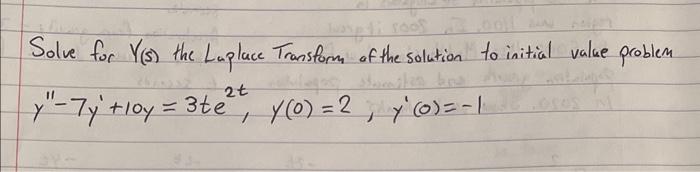 Solve for Y(s) the Laplace Transform of the solution to initial value problem
y''-7y'+10y = 3te^2t, y(0)=2, y'(0)=-1